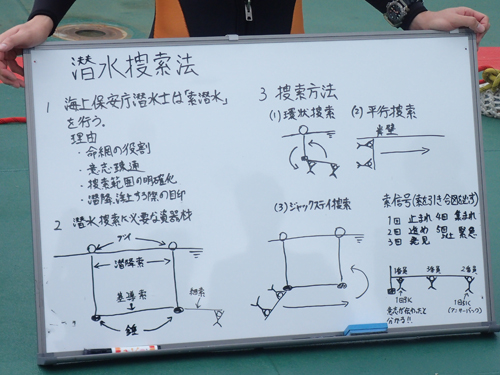 潜水捜索法
1 海上保安庁潜水士は「索潜水」
を行う。
理由
・命綱の役割
・意志疎通
・捜索範囲の明確化
・潜降、浮上する際の目印
2 潜水捜索に必要な資器材
ブイ
潜降索
基準索
細索
錘
3 捜索方法
(1) 環状捜索
(2) 平行捜索
岸壁
(3) ジャックステイ捜索
索信号(索を引き合図を出す)
1回 止まれ 4回 集まれ
2回 進め 5回以上 緊急
3回 発見
1番員 3番員 2番員
1回引く
1回引く
(アンサーバック)
意志が伝わったと
分かる!!